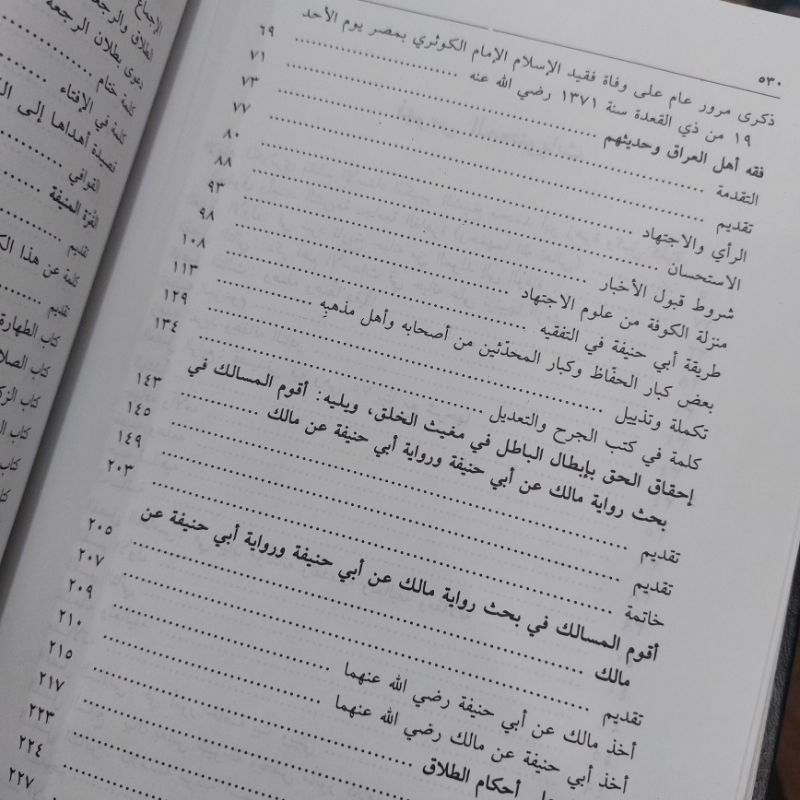 ٥٣٠
ذكرى مرور عام على وفاة فقيد الإسلام الإمام الكوثري بمصر يوم الأحد
١٩ من ذي القعدة سنة ١٣٧١ رضي الله عنه ........ ٦٩
فقه أهل العراق وحديثهم ........ ٧١
التقدمة ........ ٧٣
تقديم ........ ٧٧
الرأي والاجتهاد ........ ٨٠
الاستحسان ........ ٨٨
شروط قبول الأخبار ........ ٩٣
منزلة الكوفة من علوم الاجتهاد ........ ٩٨
طريقة أبي حنيفة في التفقيه ........ ١٠٨
بعض كبار الحفّاظ وكبار المحدّثين من أصحابه وأهل مذهبه ........ ١١٣
تكملة وتذييل ........ ١٢٩
كلمة في كتب الجرح والتعديل ........ ١٣٤
إحقاق الحق بإبطال الباطل في مغيث الخلق، ويليه: أقوم المسالك في
بحث رواية مالك عن أبي حنيفة ورواية أبي حنيفة عن مالك ........ ١٤٣
تقديم ........ ١٤٥
تقديم ........ ١٤٩
خاتمة ........ ٢٠٣
أقوم المسالك في بحث رواية مالك عن أبي حنيفة ورواية أبي حنيفة عن
مالك ........ ٢٠٥
تقديم ........ ٢٠٧
أخذ مالك عن أبي حنيفة رضي الله عنهما ........ ٢٠٩
أخذ أبي حنيفة عن مالك رضي الله عنهما ........ ٢١٠
أحكام الطلاق ........ ٢١٥
٢١٧
٢٢٣
٢٢٤
٢٢٧
الإجماع
الطلاق والرجعة
دعوى بطلان الرجعة
كلمة ختام ........
كلمة في الإفتاء ........
قصيدة أهداها إلى
القوافي ........
الغرة المنيفة
تقديم ........
كلمة عن هذا
تقديم ........
كتاب الطهارة
كتاب
كتاب
كتاب
كتاب
كتاب